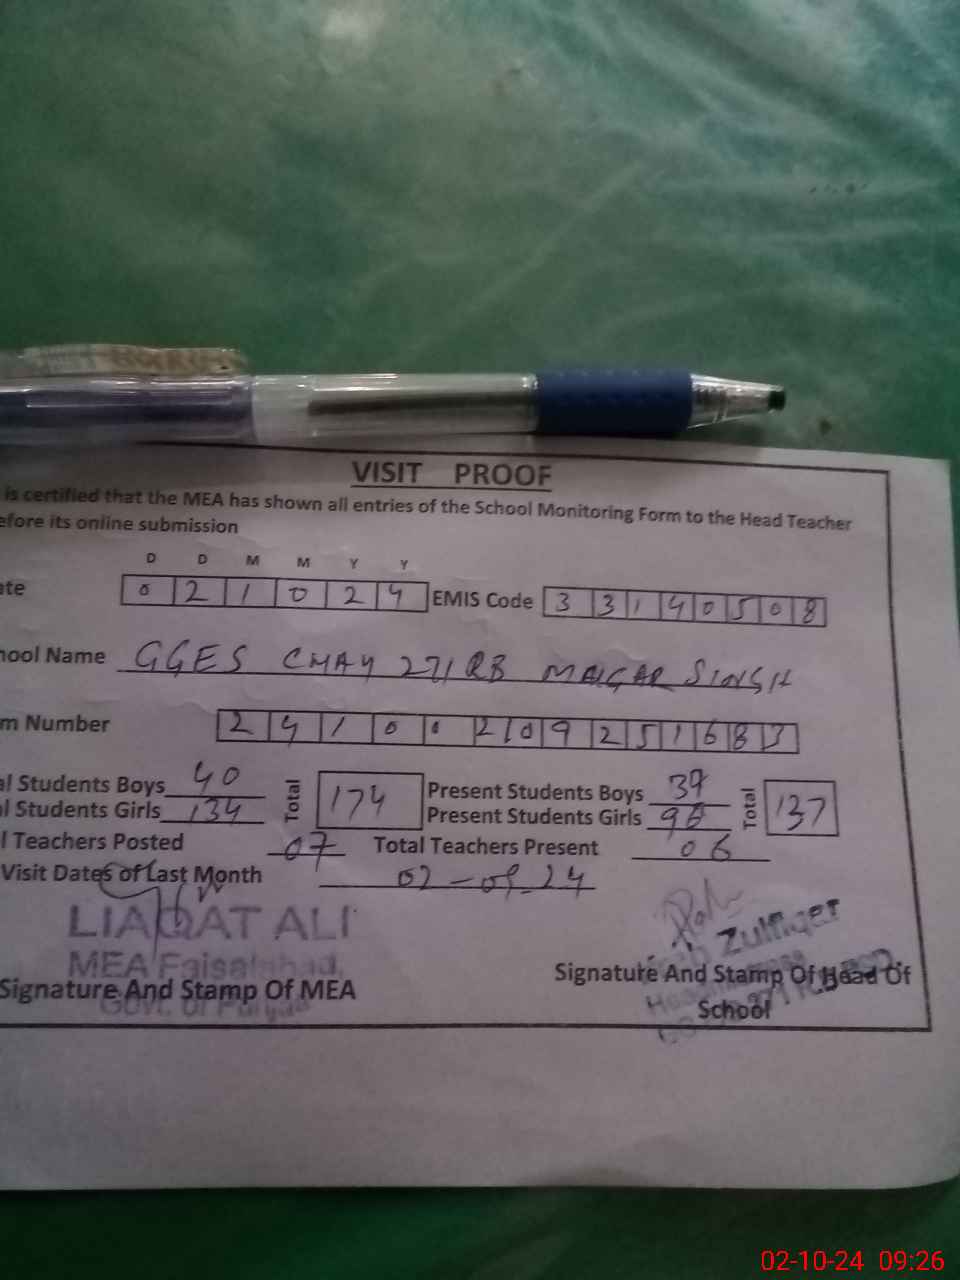 VISIT PROOF
is certified that the MEA has shown all entries of the School Monitoring Form to the Head Teacher
efore its online submission
D D M M Y Y
ate 0 2 1 0 2 4 EMIS Code 3 3 1 4 0 5 0 8
hool Name GGES CHAK 271 RB
m Number 2 4 1 0 0 2 0 9 2 5 1 6 8 3
al Students Boys 40 Total 174 Present Students Boys 39 Total 137
al Students Girls 134 Present Students Girls 98
l Teachers Posted 07 Total Teachers Present 06
Visit Dates of Last Month 02-09-24
LIAQAT ALI
MEA Faisalabad,
Zulfiqer
Signature And Stamp Of MEA
Signature And Stamp Of Head Of
School
02-10-24 09:26